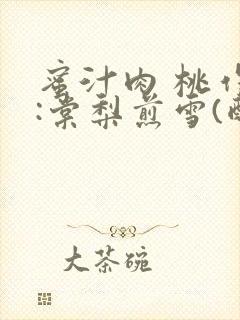 蜜汁肉桃作
:棠梨煎雪(
大茶碗